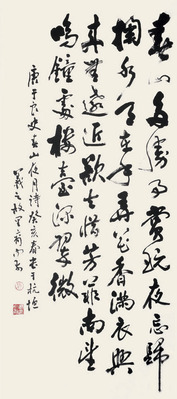 春山多勝事賞玩夜忘歸
掬水月在手弄花香滿衣興
來無遠近欲去惜芳菲南望
鳴鐘處樓臺深翠微
唐于良史春山夜月詩癸亥春書于杭垣
羲之故里